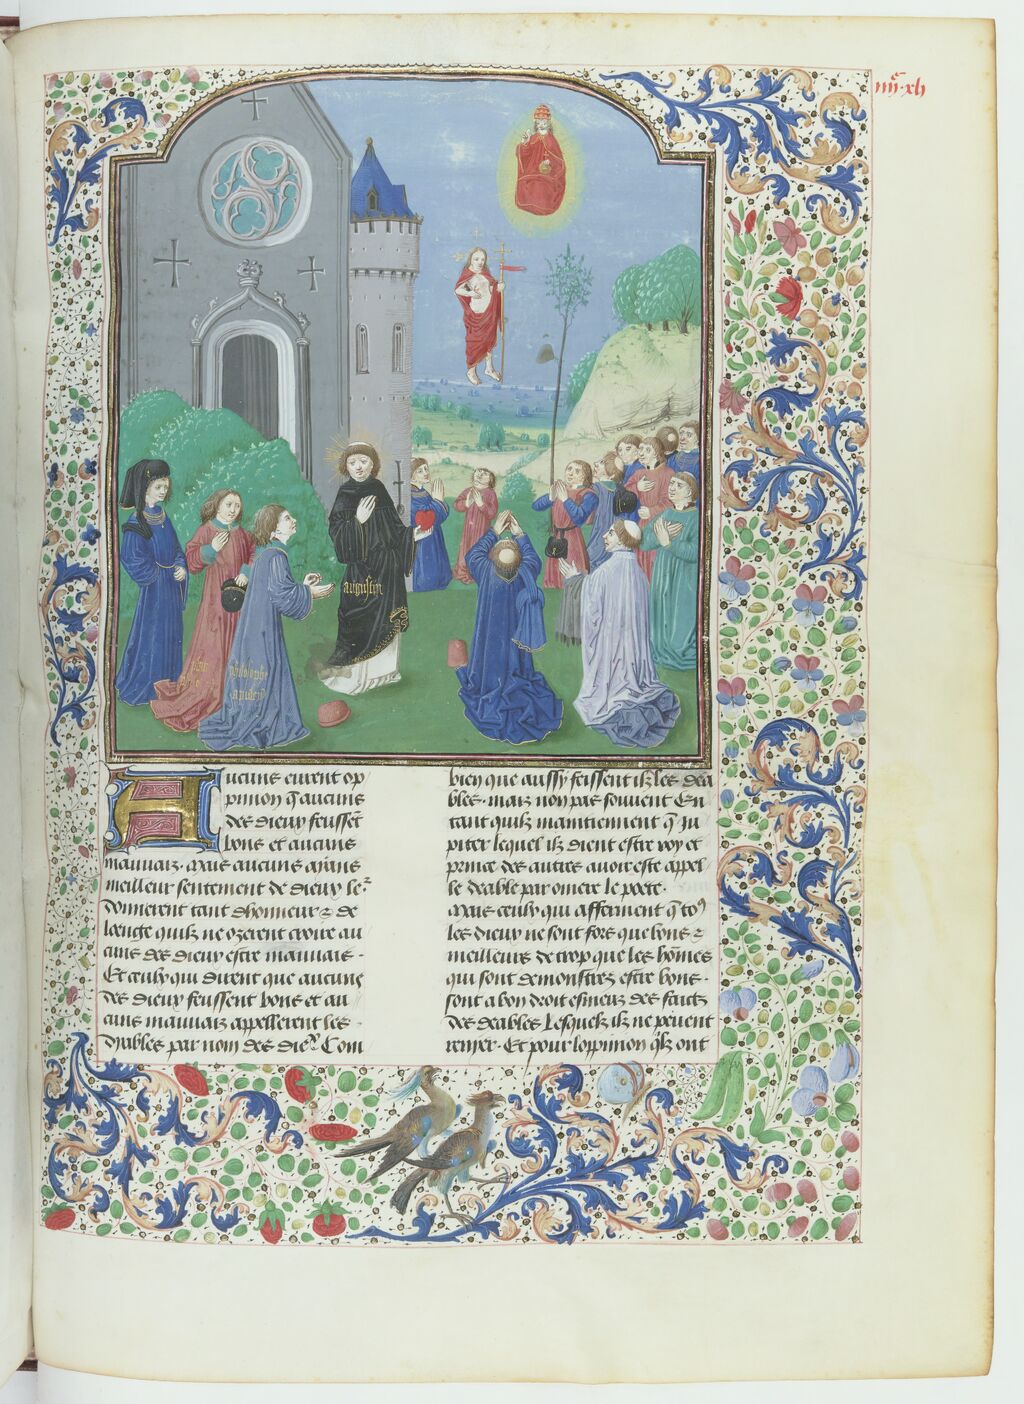 iiii^c. xli
augustin
philosophe
apuleius
Aucuns eurent op/
pinion q̃ aucuns
des dieux feussẽt
bons et aucuns
mauvaiz. Mais aucuns ayãs
meilleur sentement de dieux le²
donnerent tant dhonneur ⁊ de
loenge quilz ne ozerent croire au
cuns des dieux estre mauvais.
Et ceulx qui dirent que aucuns
des dieux feussent bons et au
cuns mauvaiz appellerent les
dyables par nom des die². Com
bien que aussy feissent ilz les dea
bles. mais non pas souvent En
tant quilz maintiennent q̃ Ju
piter lequel ilz dient estre roy et
prince des autres avoir este appel
le deable par omere le poete.
Mais ceulx qui afferment q̃ to⁹
les dieux ne sont fors que bons ⁊
meilleurs de trop que les hõmes
qui sont demonstrez estre bons.
sont a bon droit esmeuz des faictz
des deables Lesquelz ilz ne peuvent
renyer. Et pour loppinion q̃lz ont